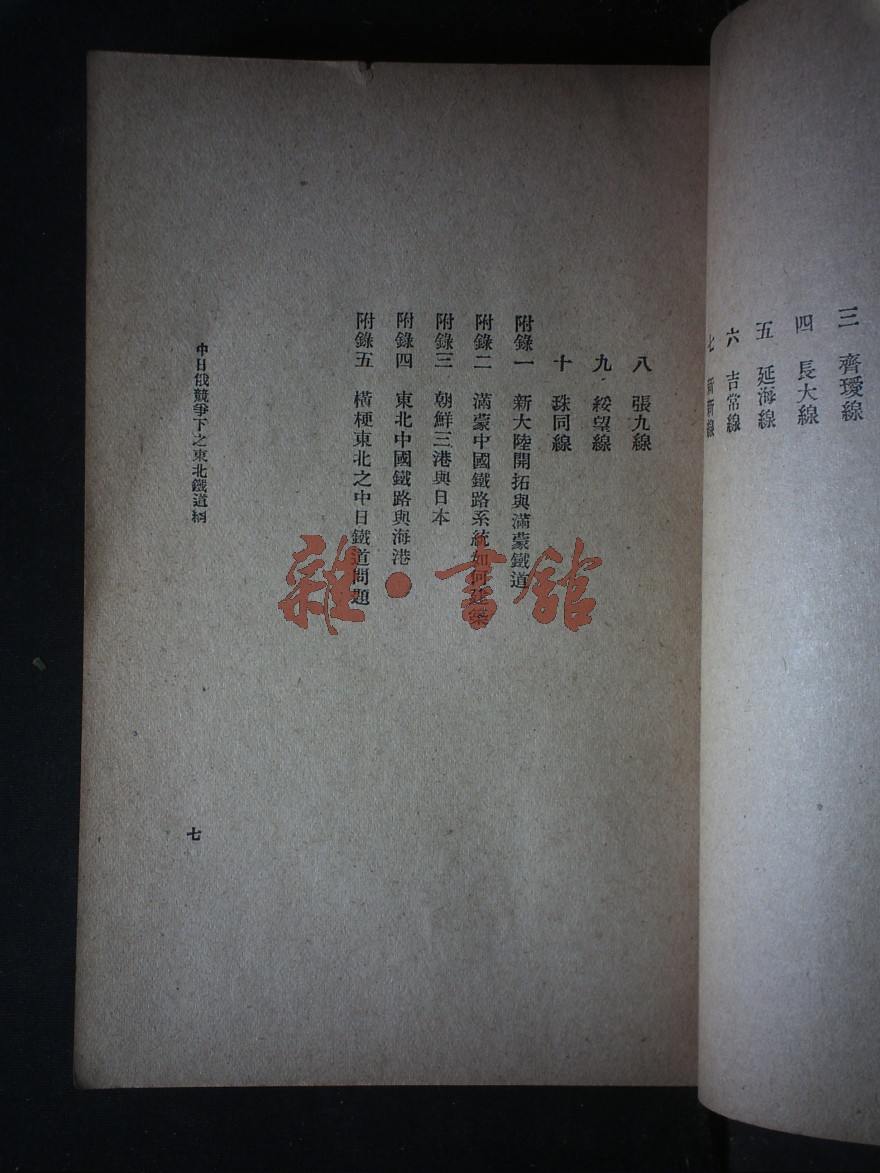 三 齊璦線
四 長大線
五 延海線
六 吉常線
七 新新線
八 張九線
九 綏望線
十 珠同線
附錄一 新大陸開拓與滿蒙鐵道
附錄二 滿蒙中國鐵路系統如何建築
附錄三 朝鮮三港與日本
附錄四 東北中國鐵路與海港
附錄五 橫梗東北之中日鐵道問題
中日俄競爭下之東北鐵道網
七
雜·書館